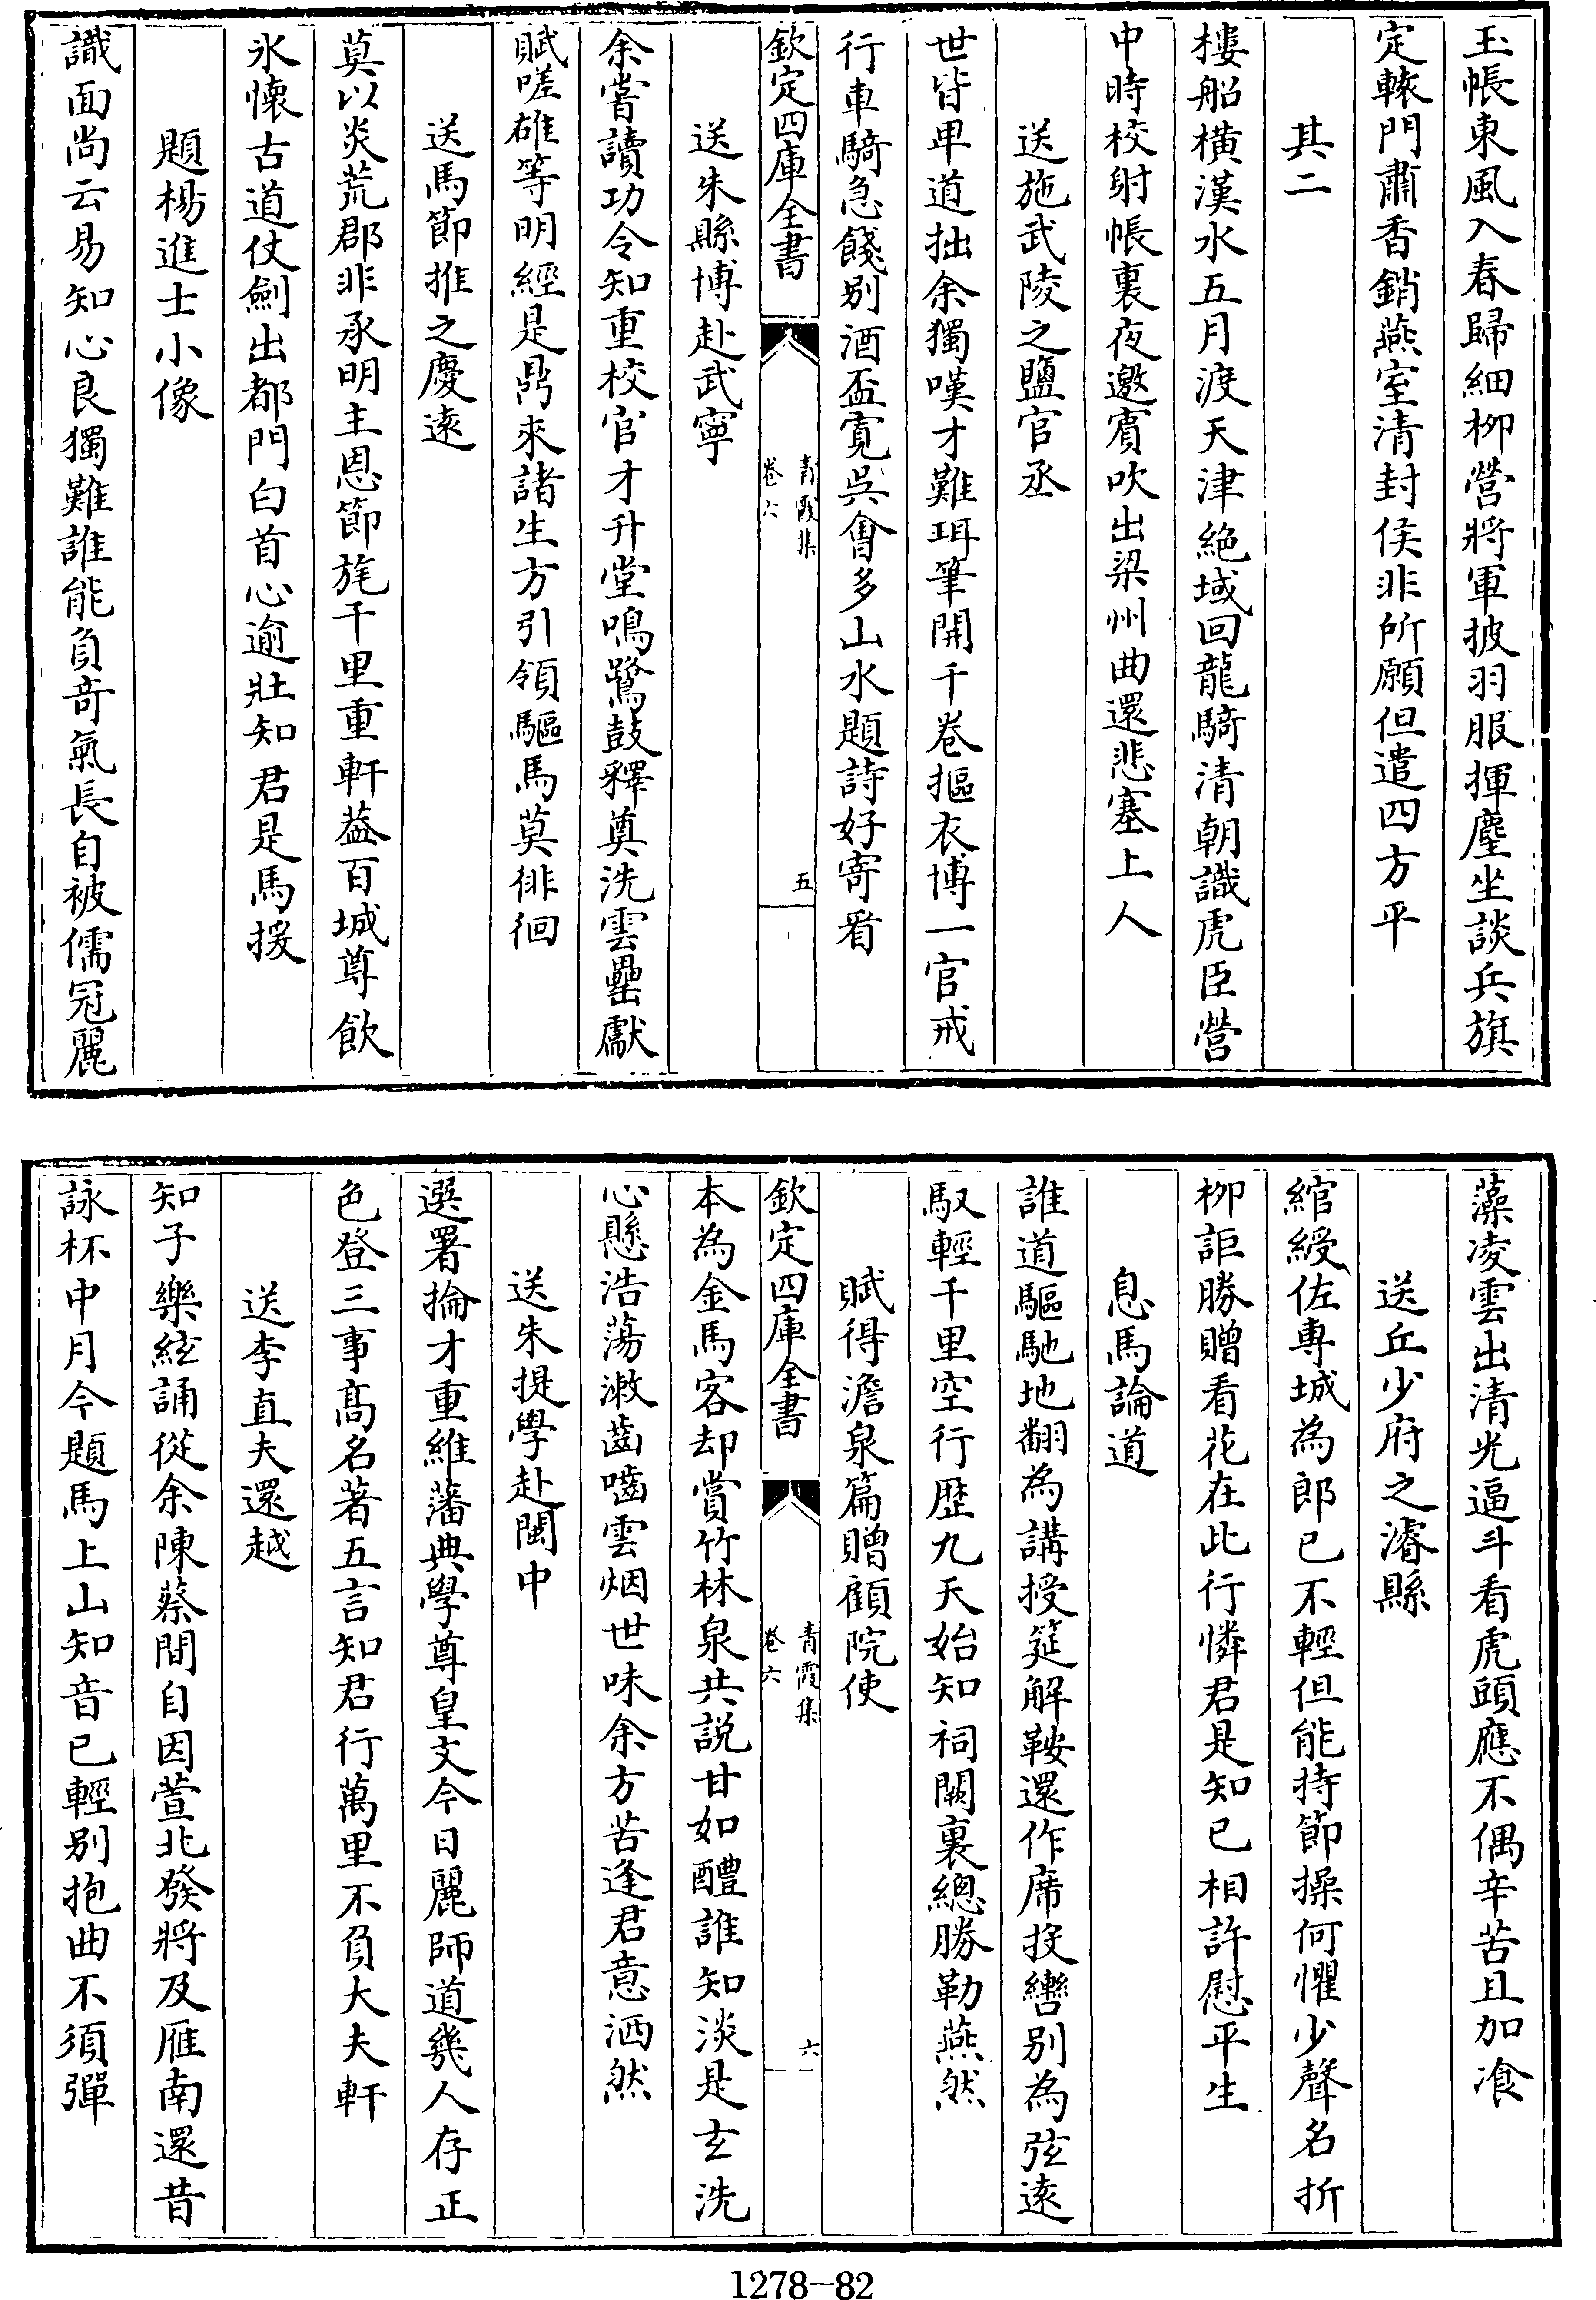 玉帳東風入春歸細栁營將軍披羽服揮麈坐談兵旗
定轅門肅香銷燕室清封侯非所願但遣四方平
其二
樓船橫漢水五月渡天津絶域回龍騎清朝識虎臣營
中時校射帳裏夜邀賓吹出梁州曲還悲塞上人
送施武陵之鹽官丞
世皆卑道拙余獨嘆才難珥筆開千卷摳衣博一官戒
行車騎急餞别酒盃寛吳會多山水題詩好寄㸔
欽定四庫全書
青霞集
卷六
五
送朱縣博赴武寧
余嘗讀功令知重校官才升堂鳴鷺鼓釋奠洗雲罍獻
賦嗟雄等明經是鼎來諸生方引領驅馬莫徘徊
送馬節推之慶遠
莫以炎荒郡非承明主恩節旄千里重軒葢百城尊飲
氷懷古道仗劍出都門白首心逾壯知君是馬援
題楊進士小像
識面尚云易知心良獨難誰能負奇氣長自被儒冠麗
藻凌雲出清光逼斗看虎頭應不偶辛苦且加飡
送丘少府之濬縣
綰綬佐専城為郎已不輕但能持節操何懼少聲名折
栁詎勝贈看花在此行憐君是知已相許慰平生
息馬論道
誰道驅馳地翻為講授筵解鞍還作席投轡别為弦逺
馭輕千里空行歴九天始知祠闕裏總勝勒燕然
賦得澹泉篇贈顧院使
欽定四庫全書
青霞集
卷六
六
本為金馬客却賞竹林泉共説甘如醴誰知淡是玄洗
心懸浩蕩漱齒嚙雲烟世味余方苦逢君意洒然
送朱提學赴閩中
選署掄才重維藩典學尊皇文今日麗師道幾人存正
色登三事髙名著五言知君行萬里不負大夫軒
送李直夫還越
知子樂絃誦從余陳蔡間自因萱北發將及雁南還昔
詠杯中月今題馬上山知音已輕别抱曲不須彈
1278-82